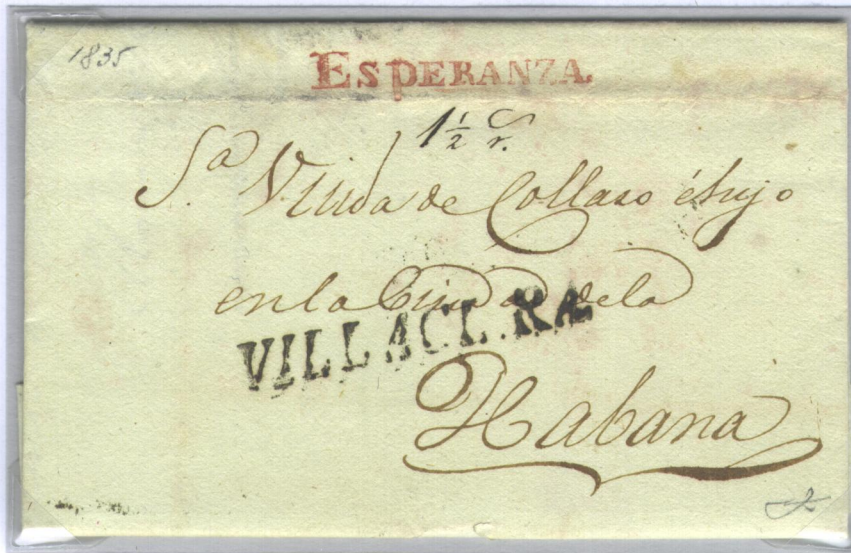 1835
ESPERANZA
1½ r.
S.ª Viuda de Collaso é hijo
en la Ciudad de la
VILLACLARA
Habana